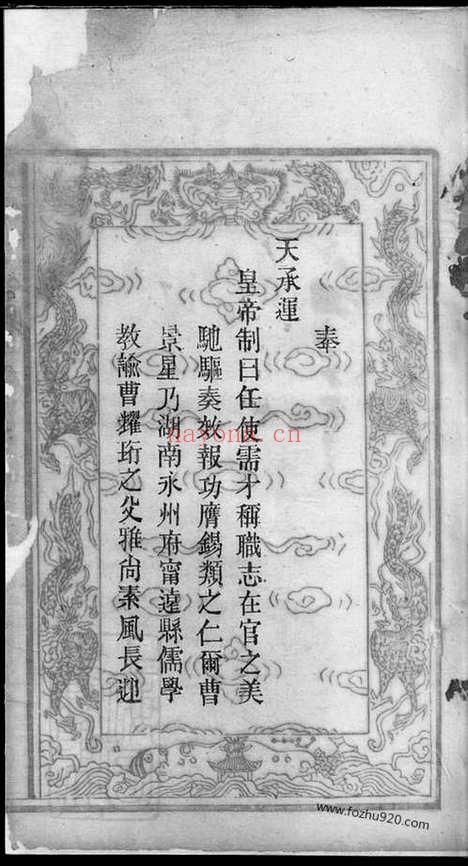 奉
天承運
皇帝制曰任使需才稱職志在官之美
馳驅奏效報功膺錫類之仁爾曹
景星乃湖南永州府甯遠縣儒學
教諭曹耀珩之父雅尚素風長迎
nayona.cn
www.fozhu920.com